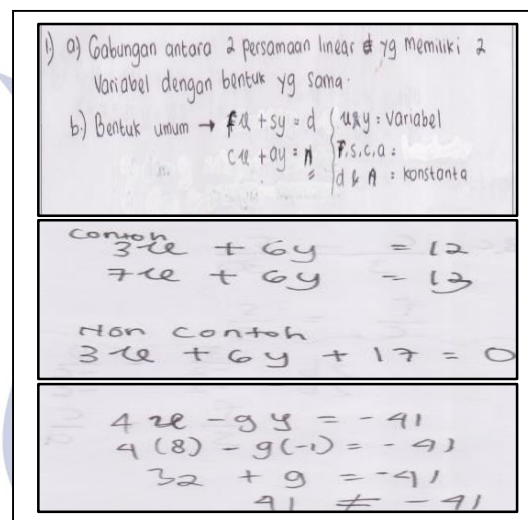 1) a) Gabungan antara 2 persamaan linear yg memiliki 2
Variabel dengan bentuk yg sama.
b.) Bentuk umum → fx + sy = d { x & y : variabel
cx + ay = n { F, s, c, a :
{ d & A : konstanta
contoh
3x + 6y = 12
7x + 6y = 13
Non contoh
3x + 6y + 17 = 0
4x - 9y = -41
4(8) - 9(-1) = -41
32 + 9 = -41
41 ≠ -41